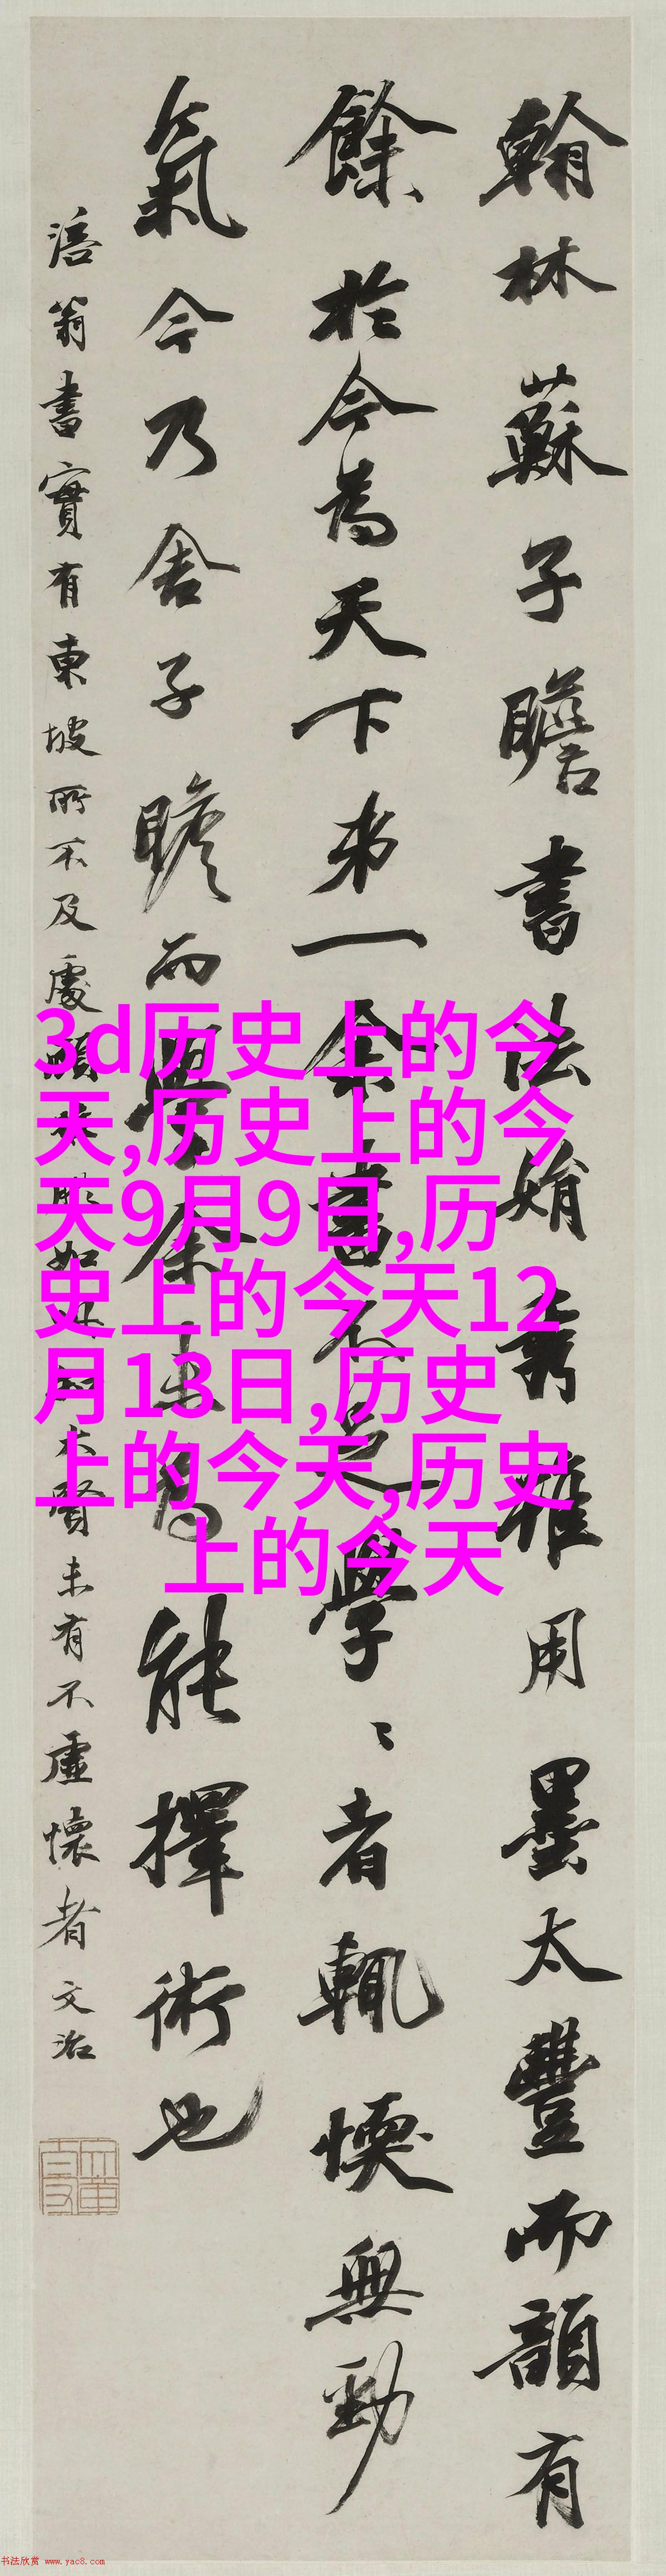 翰林蘇子瞻書法娟秀雖用墨太豐而韻有
餘於今為天下第一余書不足學學者輒愞無勁
氣今乃舍子瞻而學余未為能擇術也
涪翁書實有東坡所不及處 如 大賢未有不虛懷者文治
3d历史上的今
天,历史上的今
天9月9日,历
史上的今天12
月13日,历史
上的今天,历史
上的今天
书法欣赏 www.yac8.com